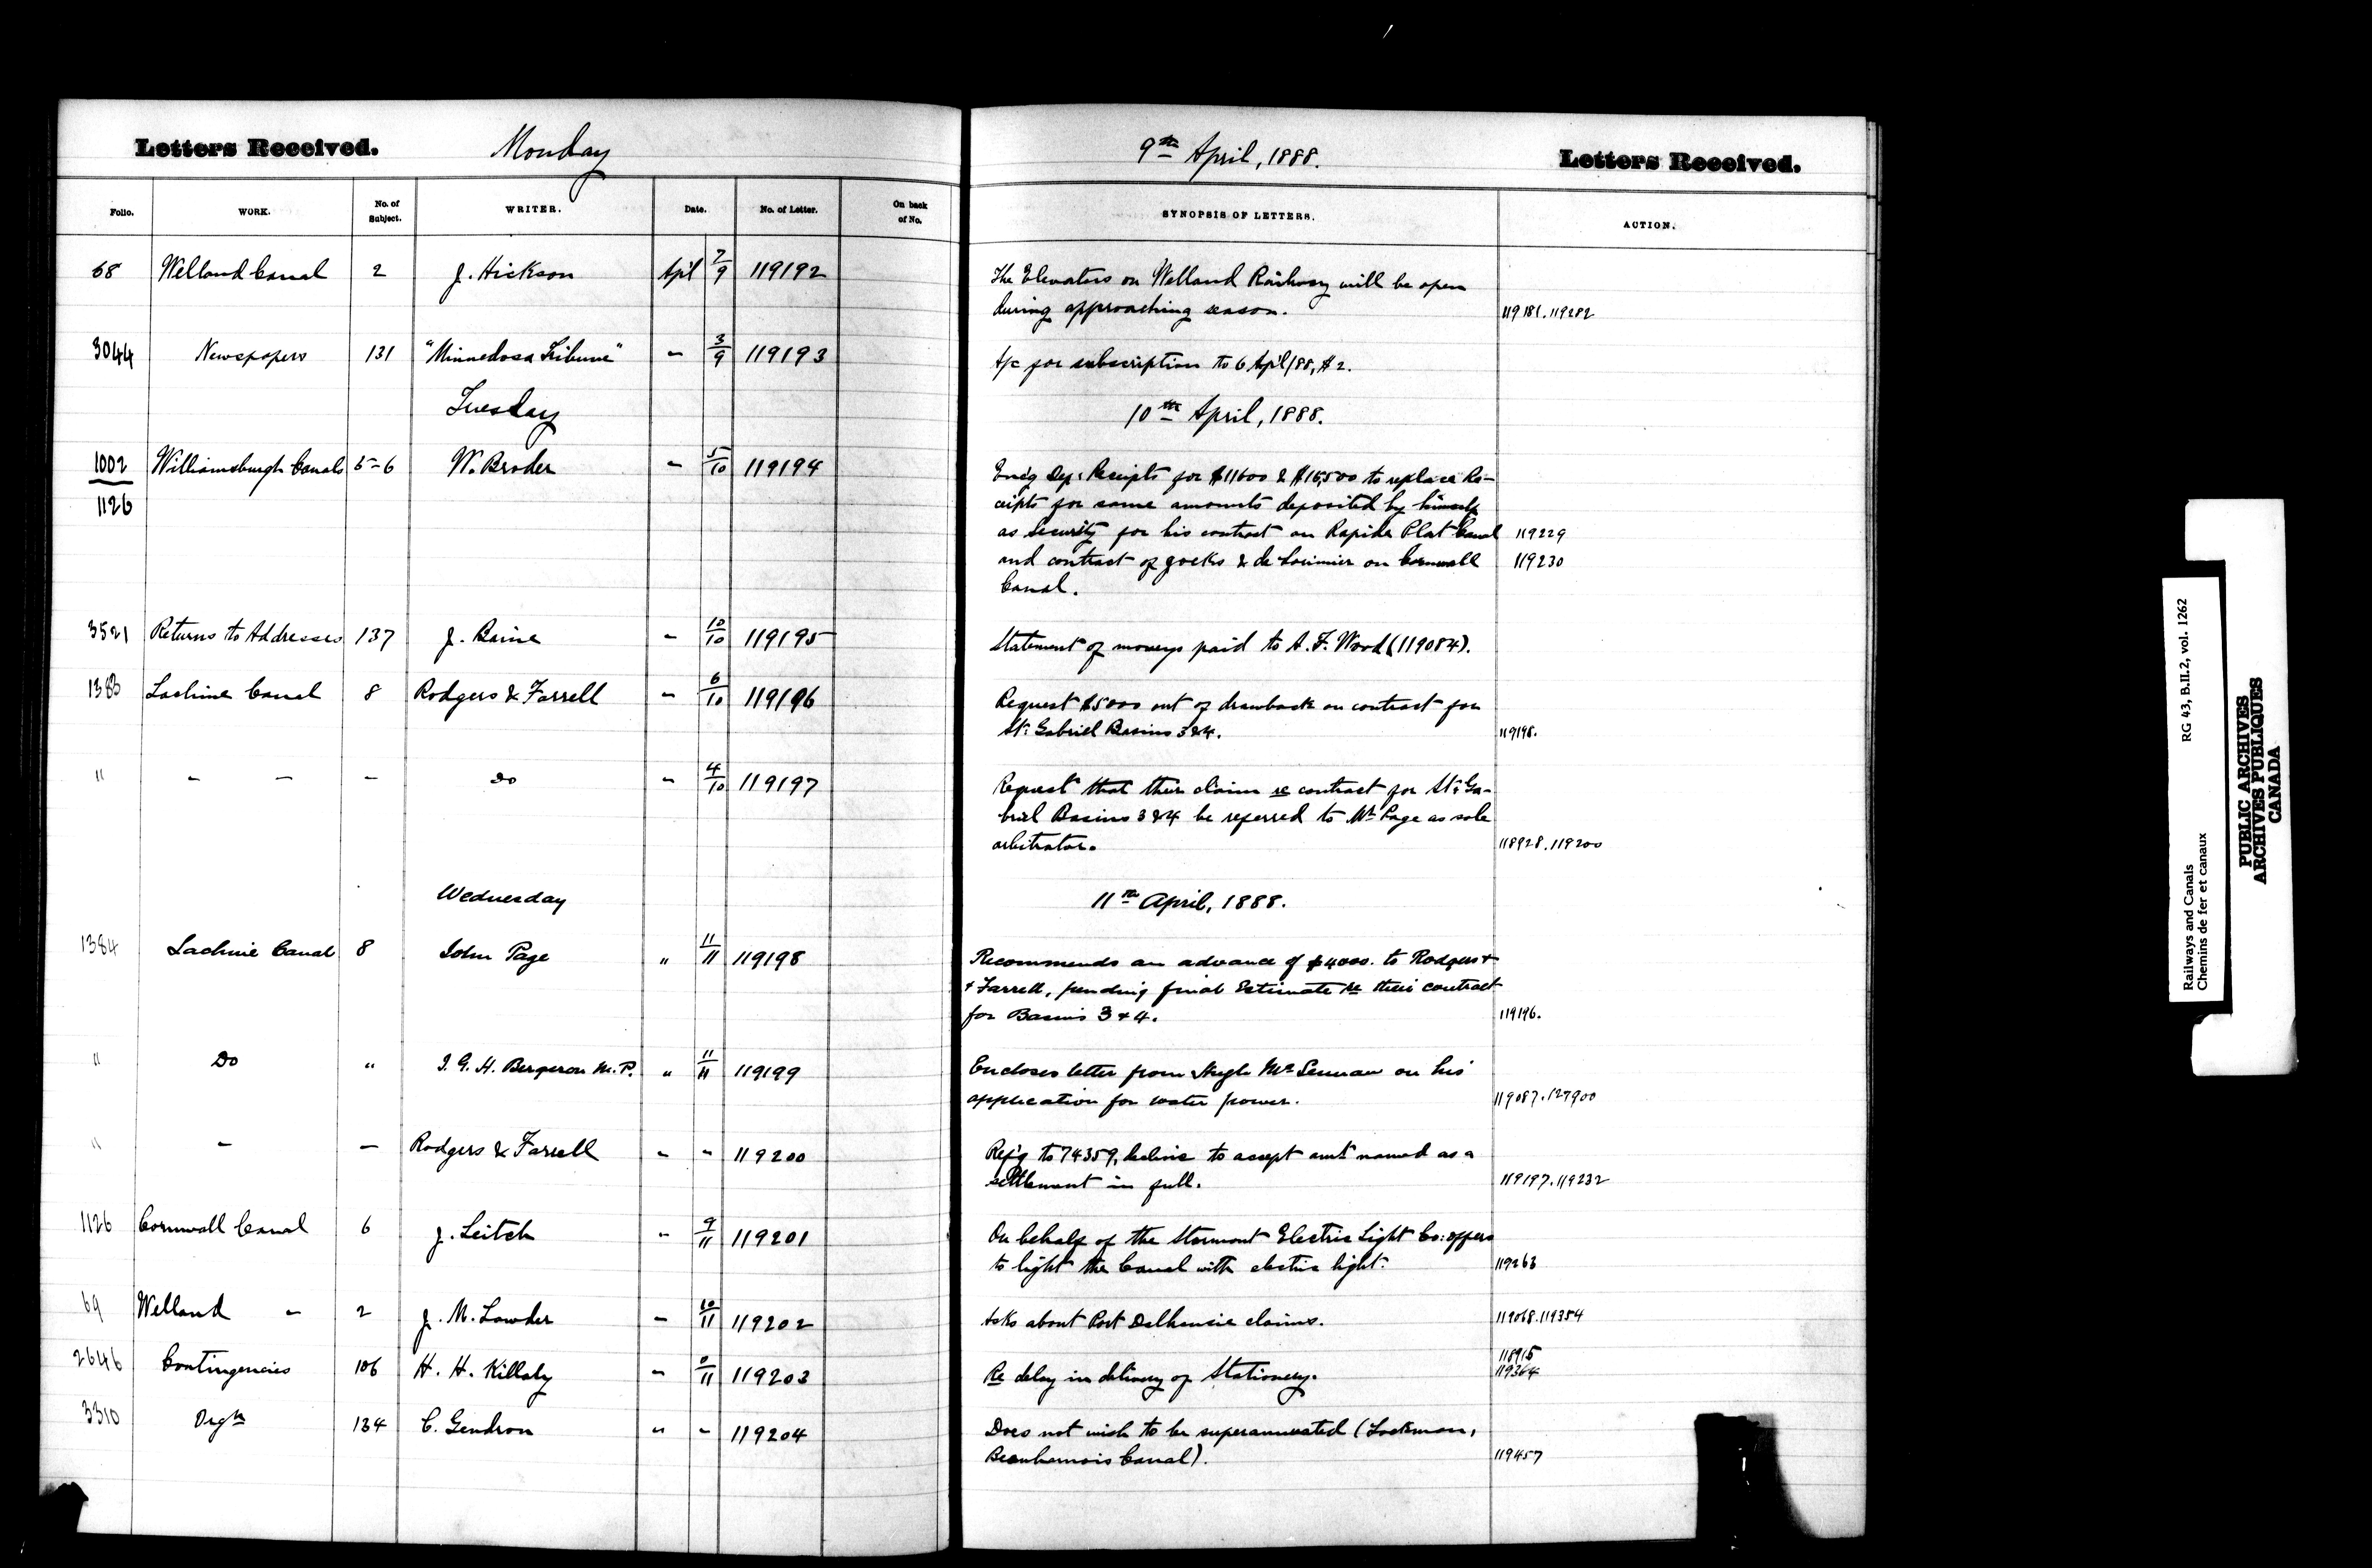 Letters Received. Monday 9th April, 1888. Letters Received.
Folio. WORK. No. of Subject. WRITER. Date. No. of Letter. On back of No. SYNOPSIS OF LETTERS. ACTION.
68 Welland Canal 2 J. Hickson Apl 7/9 119192 The Elevators on Welland Railway will be open
during approaching season. 119181.119282
3044 Newspapers 131 "Minnedosa Tribune" " 3/9 119193 A/c for subscription to 6 Apl/88, $2.
Tuesday 10th April, 1888.
1002 Williamsburgh Canals 5-6 W. Broder " 5/10 119194 Enc'g Dep: Receipts for $11600 & $16,500 to replace Re-
1126 ceipts for same amounts deposited by himself
as security for his contract on Rapide Plat Canal 119229
and contract of Jocks & de Lorimier on Cornwall 119230
Canal.
3521 Returns to Addresses 137 J. Baine " 10/10 119195 Statement of moneys paid to A. F. Wood (119084).
1383 Lachine Canal 8 Rodgers & Farrell " 6/10 119196 Request $5000 out of drawback on contract for
St: Gabriel Basins 3&4. 119198.
" " " " Do " 4/10 119197 Request that their claim re contract for St: Ga-
briel Basins 3&4 be referred to Mr Page as sole
arbitrator. 118928.119200
Wednesday 11th April, 1888.
1384 Lachine Canal 8 John Page " 11/11 119198 Recommends an advance of $4000. to Rodgers +
+ Farrell, pending final Estimate re their contract
for Basins 3+4. 119196.
" Do " J. G. H. Bergeron M.P. " 11/11 119199 Encloses letter from Hugh McLennan on his
application for water power. 119087.127900
" " " Rodgers & Farrell " " 119200 Ref'g to 74359, decline to accept amt named as a
settlement in full. 119197.119232
1126 Cornwall Canal 6 J. Leitch " 9/11 119201 On behalf of the Stormont Electric Light Co: offers
to light the Canal with electric light. 119263
69 Welland " 2 J. M. Lawder " 10/11 119202 Asks about Port Dalhousie claims. 119068.119354
118915
2646 Contingencies 106 H. H. Killaly " /11 119203 Re delay in delivery of Stationery. 119364
3310 Orgn 134 C. Gendron " " 119204 Does not wish to be superannuated (Lockman,
Beauharnois Canal). 119457
Railways and Canals RG 43, B.II.2, vol. 1262
Chemins de fer et canaux
PUBLIC ARCHIVES
ARCHIVES PUBLIQUES
CANADA